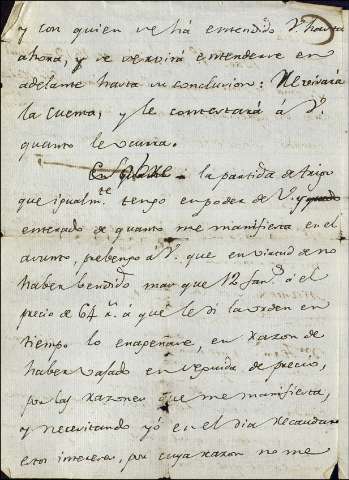 y con quien se há entendido V. hasta
ahora, y se servirá entenderse en
adelante hasta su conclusion: Revisará
la cuenta, y le contestará á V.
quanto le ocurra.
Sobre la partida de trigo
que igualmte tengo en poder de V. y quedo
enterado de quanto me manifiesta en el
asunto, prebengo á V. que en virtud de no
haber bendido mas que 12 fans á el
precio de 64 rs á que le di la orden en
tiempo lo enageñase, en razon de
haber vajado en seguida de precio,
por las razones que me manifiesta,
y necesitando yó en el dia recaudar
estos intereses, por cuya razon no me